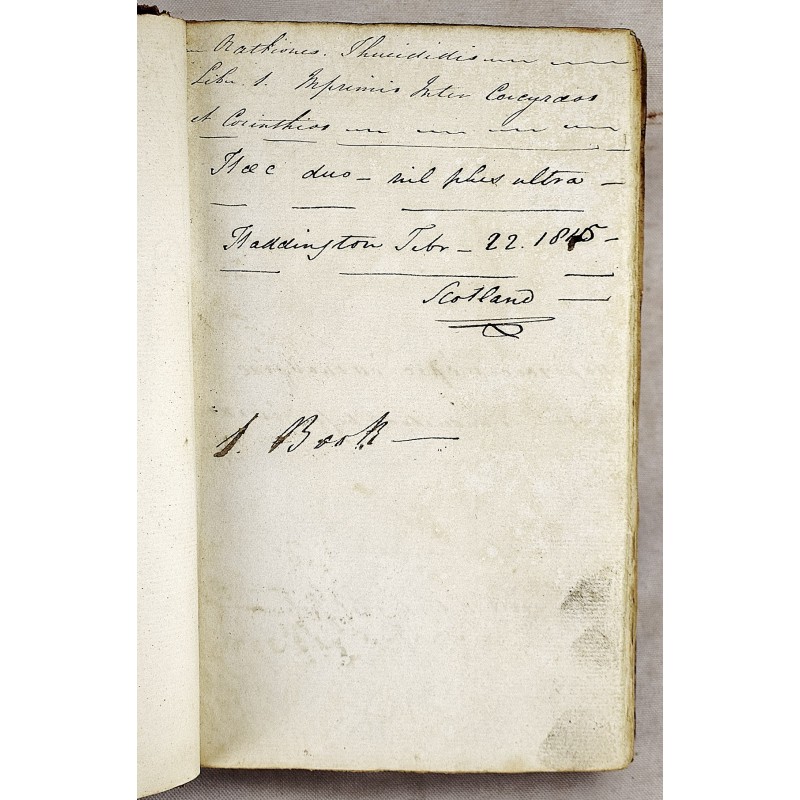 Orationes. Thucididis
Libr. 1. Inprimis Inter Corcyræos
et Corinthios
Hæc duo – nil plus ultra –
Haddington Febr – 22. 1845 –
Scotland
1. Book –